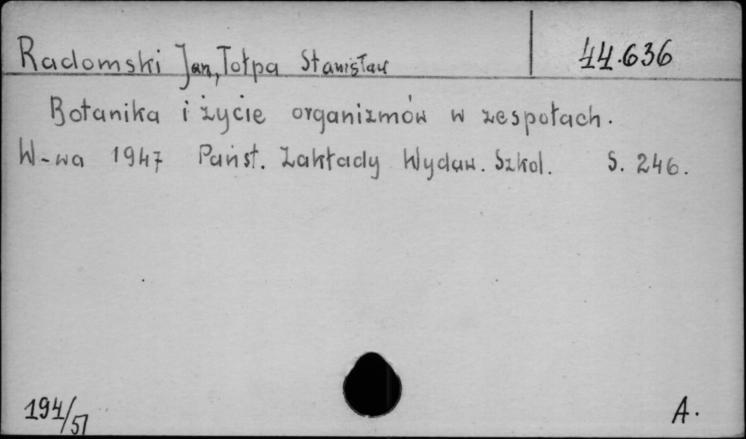 Radomski Jan, Tołpa Stanisław 44.636
Botanika i życie organizmów w zespołach.
W-wa 1947 Państ. Zakłady Wydaw. Szkol. S. 246.
194/51 A.